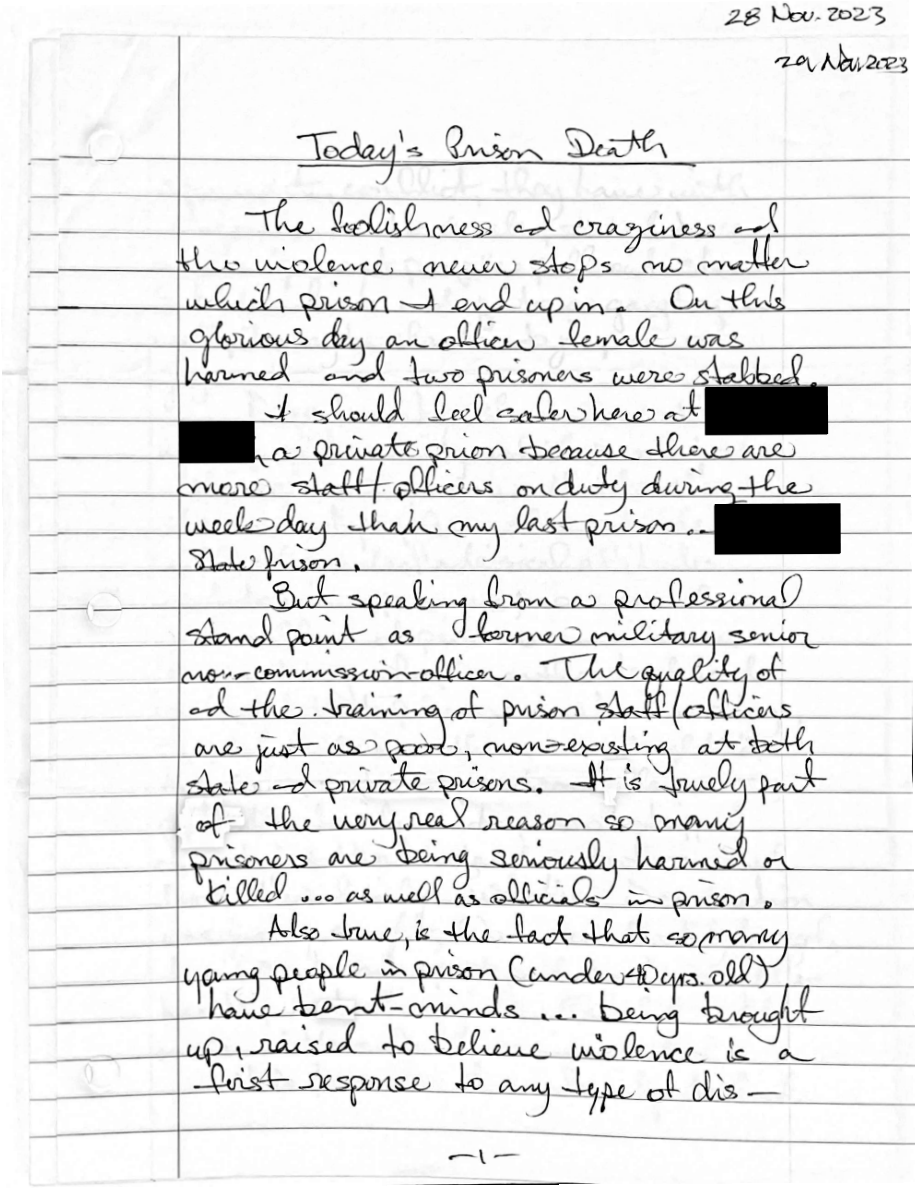 28 Nov. 2023
29 Nov 2023
Today's Prison Death
The foolishness and craziness and
the violence never stops no matter
which prison I end up in. On this
glorious day an officer female was
harmed and two prisoners were stabbed.
I should feel safer here at
, a private prion because there are
more staff/officers on duty during the
week day than my last prison..
State prison.
But speaking from a professional
stand point as former military senior
non-commission-officer. The quality of
and the training of prison staff/officers
are just as poor, non-existing at both
state and private prisons. It is truely part
of the very real reason so many
prisoners are being seriously harmed or
killed ... as well as officials in prison.
Also true, is the fact that so many
young people in prison (under 40 yrs. old)
have bent-minds ... being brought
up, raised to believe violence is a
first response to any type of dis-
-1-